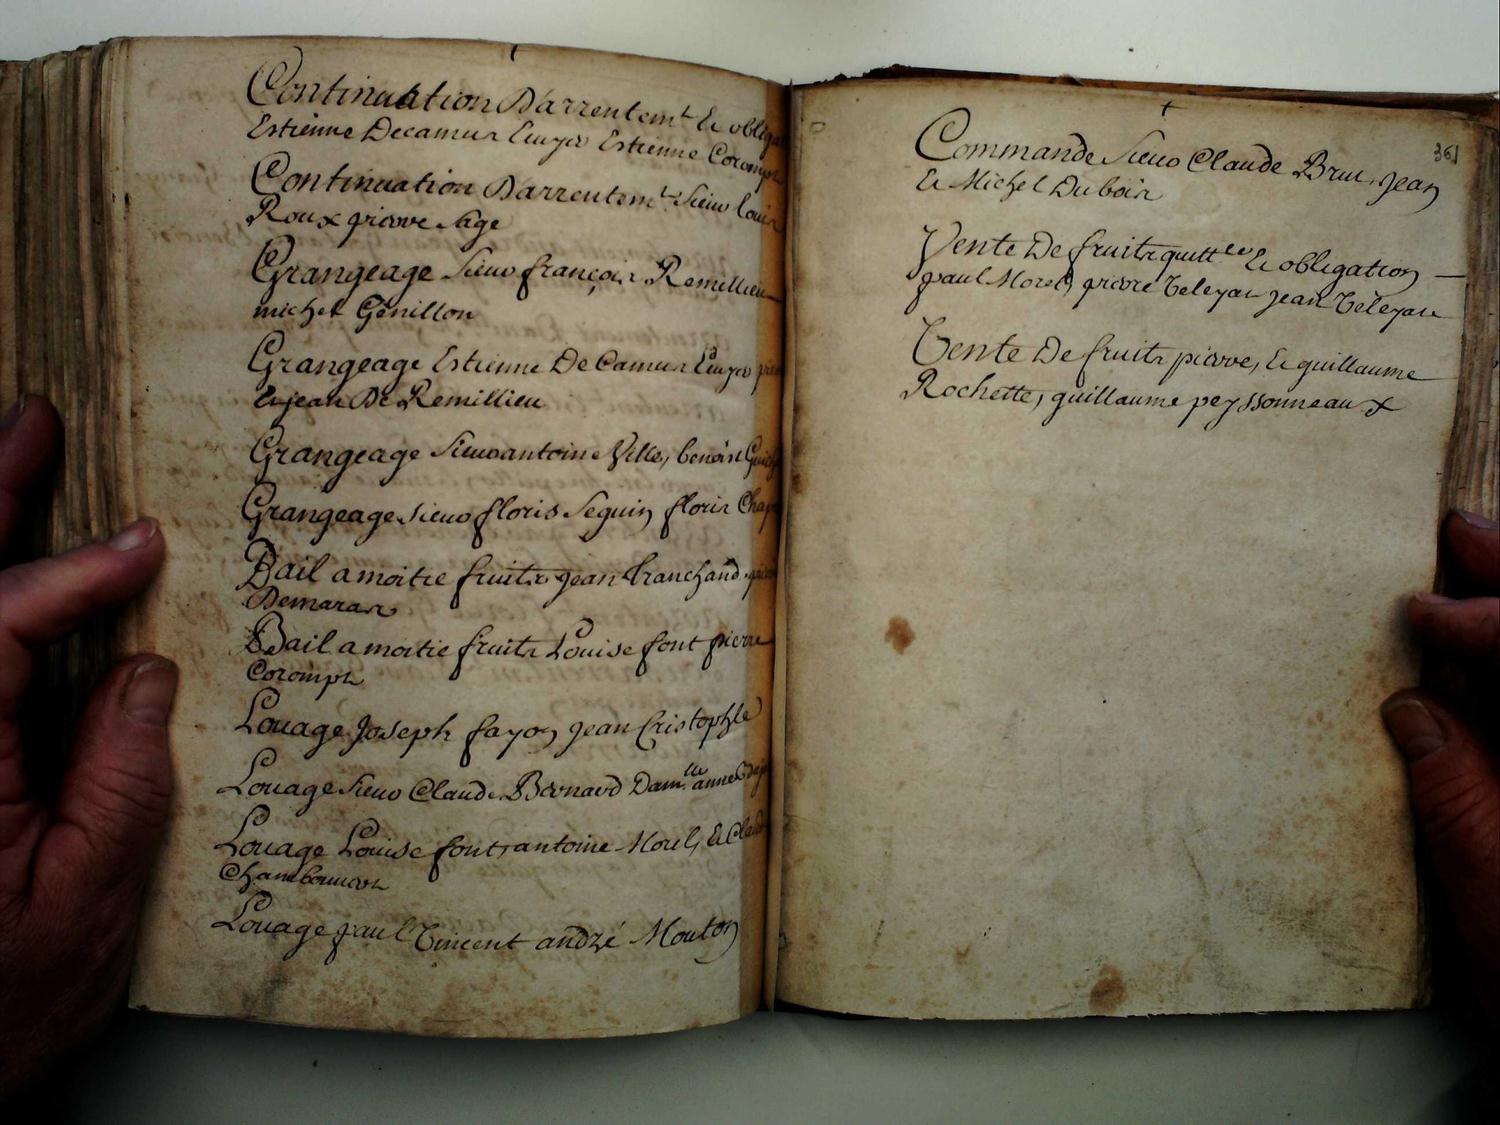 Continuation Darrentem.t Et obliga
Estienne Decamus Estienne Coromph
Continuation Darrentem.t Sieur louis
Roux pierre Sage
Grangeage Sieur françois Remillieu
michel Genillon
Grangeage Estienne De Camus
Et jean De Remillieu
Grangeage Sieur antoine Ville, benoist
Grangeage Sieur floris Seguin floris Chap
Bail a moitie fruits jean tranchand
Demaran
Bail a moitie fruits Louise font pierre
Coromph
Louage Joseph fayon jean Cristophle
Louage Sieur Claude Bernard Dam.lle anne
Louage Louise font, antoine Morel, Et Claud
Louage paul Vincent andré Mouton
361
Commande Sieur Claude Brun, jean
Et Michel Dubois
Vente De fruits quitt.ce Et obligation
paul Morel, pierre Teleyas jean Teleyas
Vente De fruits pierre, Et guillaume
Rochette, guillaume peyssonneaux